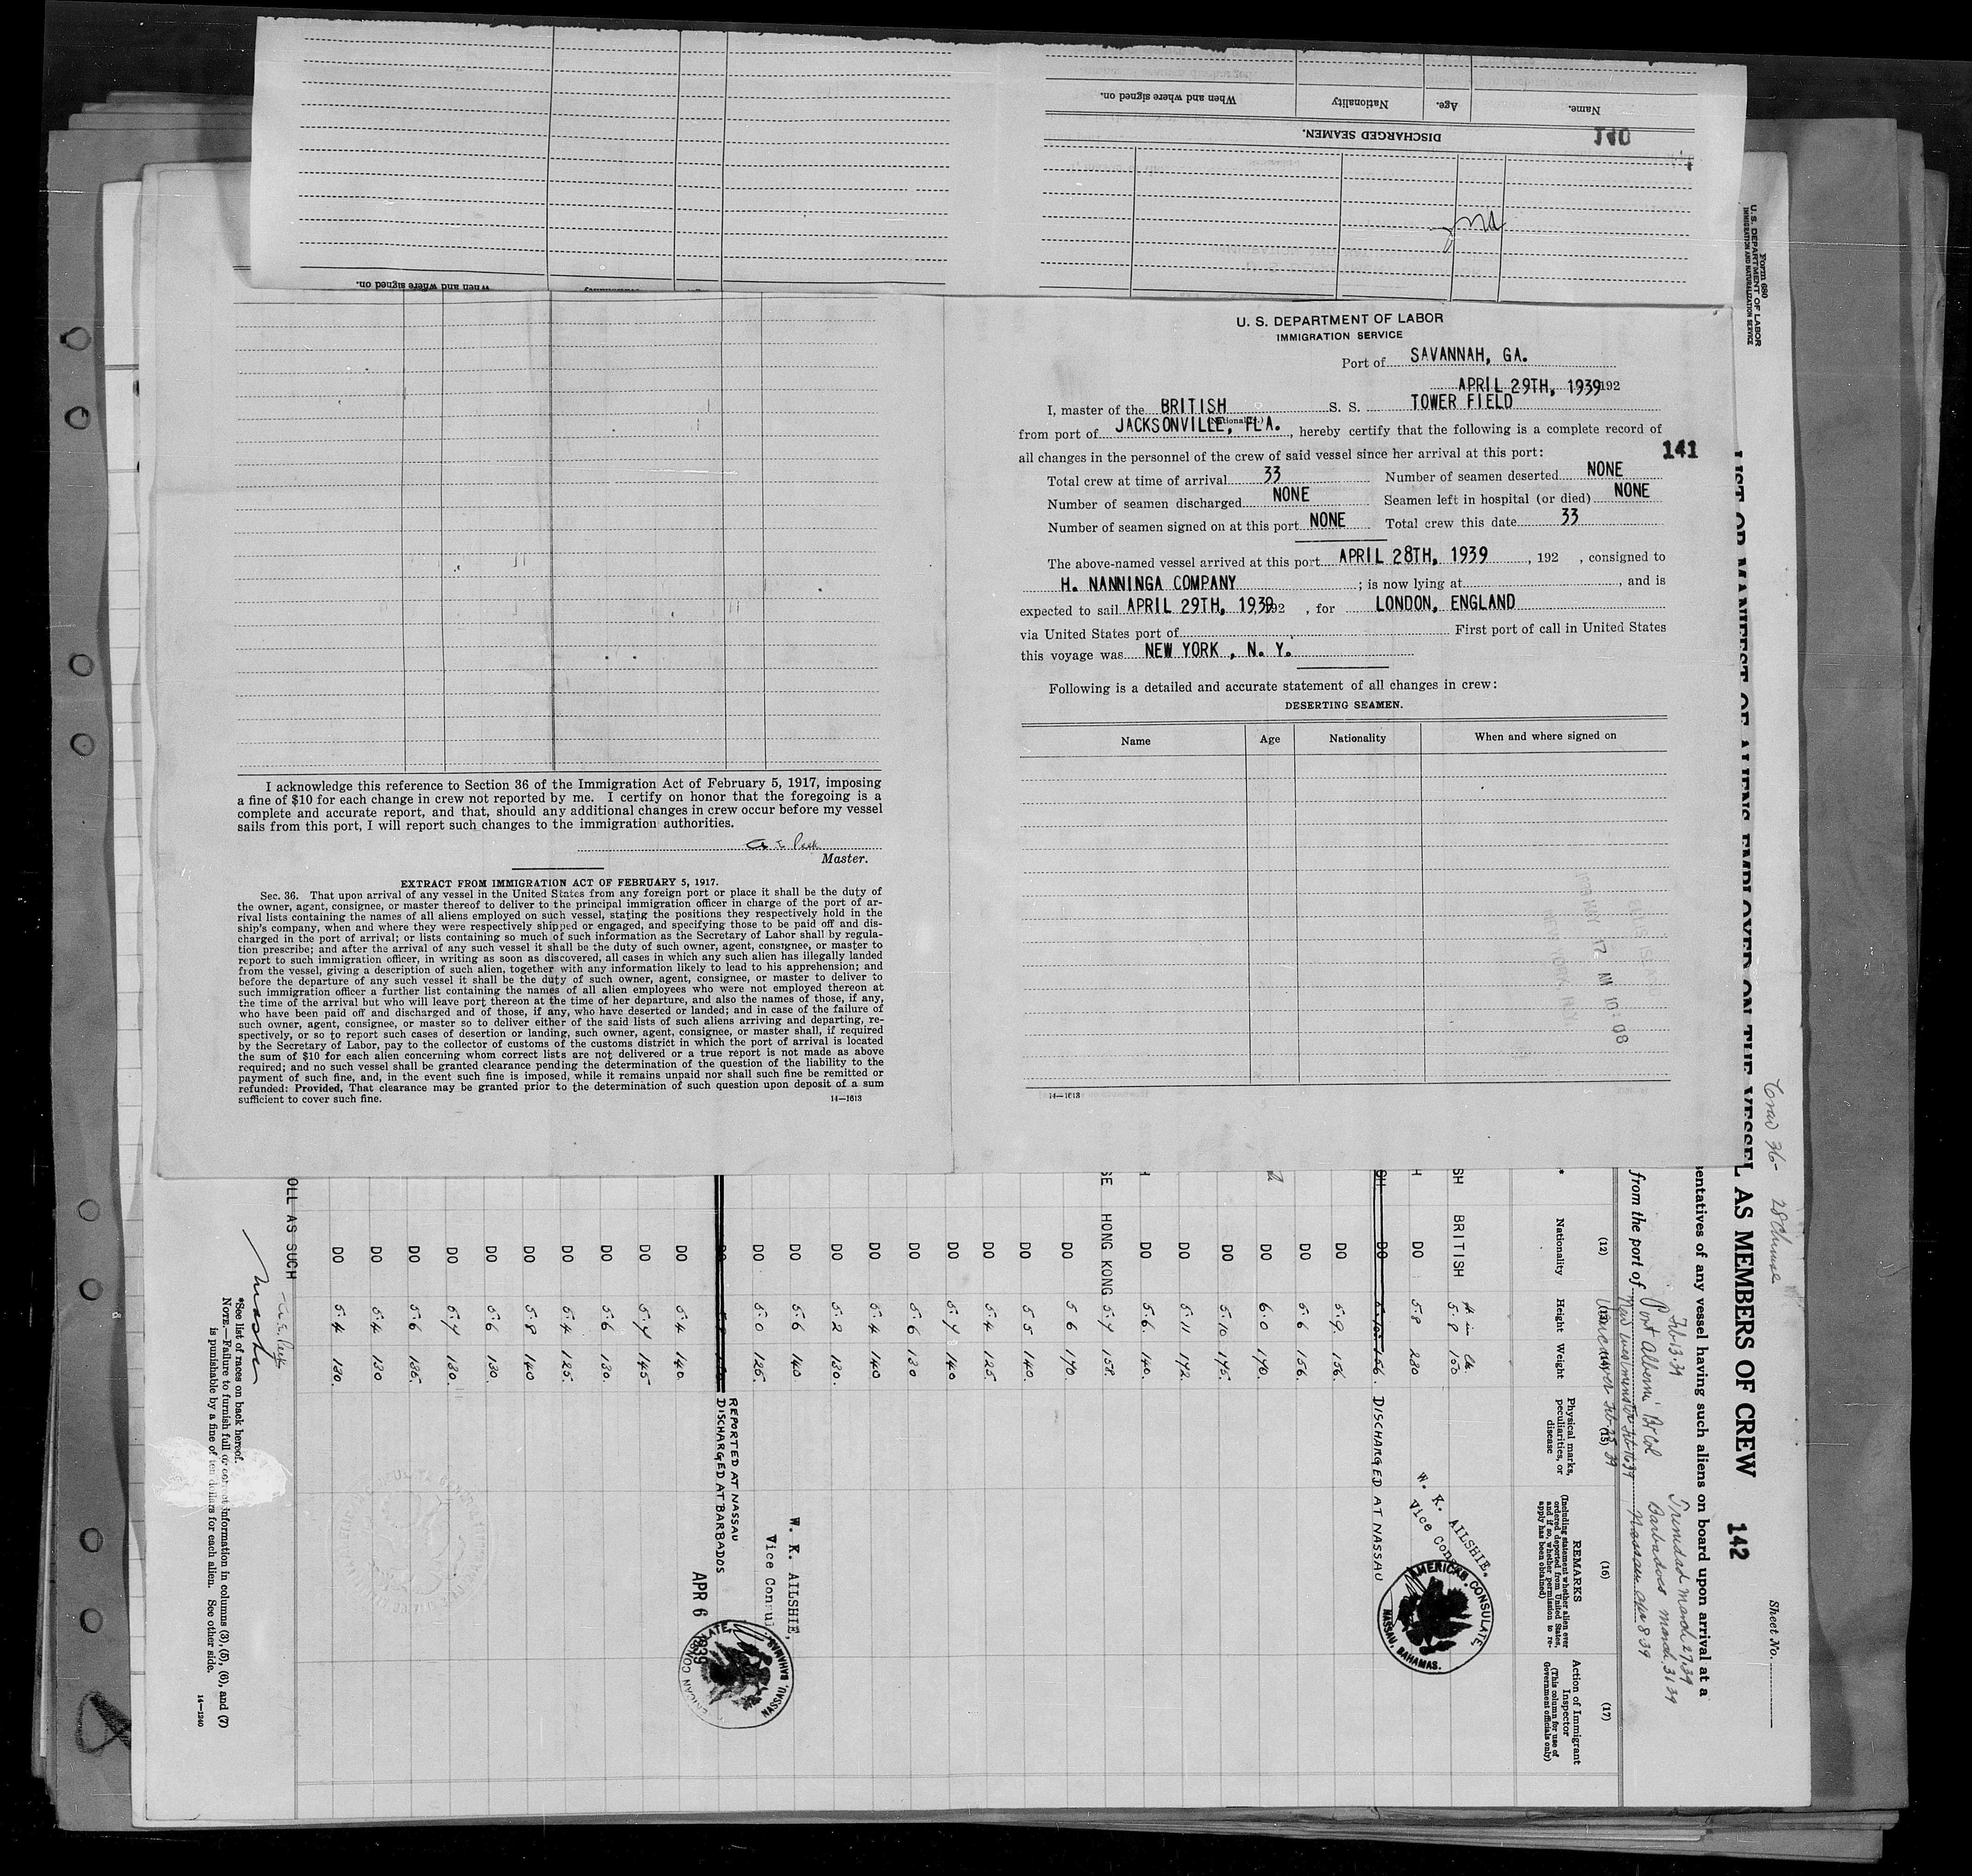 Name.
Age.
Nationality
When and where signed on.
DISCHARGED SEAMEN.
140
When and where signed on.
U. S. DEPARTMENT OF LABOR
IMMIGRATION SERVICE
Port of SAVANNAH, GA.
APRIL 29TH, 1939 192
I, master of the BRITISH S. S. TOWER FIELD
(Nationality.)
from port of JACKSONVILLE, FLA., hereby certify that the following is a complete record of
all changes in the personnel of the crew of said vessel since her arrival at this port:
141
Total crew at time of arrival 33 Number of seamen deserted NONE
Number of seamen discharged NONE Seamen left in hospital (or died) NONE
Number of seamen signed on at this port NONE Total crew this date 33
The above-named vessel arrived at this port APRIL 28TH, 1939, 192 , consigned to
H. NANNINGA COMPANY ; is now lying at , and is
expected to sail APRIL 29TH, 1939 192 , for LONDON, ENGLAND
via United States port of First port of call in United States
this voyage was NEW YORK , N. Y.
Following is a detailed and accurate statement of all changes in crew:
DESERTING SEAMEN.
Name Age Nationality When and where signed on
17 AM 10:08
14—1613
I acknowledge this reference to Section 36 of the Immigration Act of February 5, 1917, imposing
a fine of $10 for each change in crew not reported by me. I certify on honor that the foregoing is a
complete and accurate report, and that, should any additional changes in crew occur before my vessel
sails from this port, I will report such changes to the immigration authorities.
Master.
EXTRACT FROM IMMIGRATION ACT OF FEBRUARY 5, 1917.
Sec. 36. That upon arrival of any vessel in the United States from any foreign port or place it shall be the duty of
the owner, agent, consignee, or master thereof to deliver to the principal immigration officer in charge of the port of ar-
rival lists containing the names of all aliens employed on such vessel, stating the positions they respectively hold in the
ship's company, when and where they were respectively shipped or engaged, and specifying those to be paid off and dis-
charged in the port of arrival; or lists containing so much of such information as the Secretary of Labor shall by regula-
tion prescribe; and after the arrival of any such vessel it shall be the duty of such owner, agent, consignee, or master to
report to such immigration officer, in writing as soon as discovered, all cases in which any such alien has illegally landed
from the vessel, giving a description of such alien, together with any information likely to lead to his apprehension; and
before the departure of any such vessel it shall be the duty of such owner, agent, consignee, or master to deliver to
such immigration officer a further list containing the names of all alien employees who were not employed thereon at
the time of the arrival but who will leave port thereon at the time of her departure, and also the names of those, if any,
who have been paid off and discharged and of those, if any, who have deserted or landed; and in case of the failure of
such owner, agent, consignee, or master so to deliver either of the said lists of such aliens arriving and departing, re-
spectively, or so to report such cases of desertion or landing, such owner, agent, consignee, or master shall, if required
by the Secretary of Labor, pay to the collector of customs of the customs district in which the port of arrival is located
the sum of $10 for each alien concerning whom correct lists are not delivered or a true report is not made as above
required; and no such vessel shall be granted clearance pending the determination of the question of the liability to the
payment of such fine, and, in the event such fine is imposed, while it remains unpaid nor shall such fine be remitted or
refunded: Provided, That clearance may be granted prior to the determination of such question upon deposit of a sum
sufficient to cover such fine.
14—1613
Form 680
U. S. DEPARTMENT OF LABOR
IMMIGRATION AND NATURALIZATION SERVICE
Sheet No.
Crew 36- 28 Chinese
LIST OR MANIFEST OF ALIENS EMPLOYED ON THE VESSEL AS MEMBERS OF CREW
142
entatives of any vessel having such aliens on board upon arrival at a
Feb-13-39 Trinidad March 27.39
from the port of Port Alberni Br Col Barbados March 31 39
Nassau apr 8 39
(12) (13) (14) (15) (16) (17)
Nationality
Height
Weight
Physical marks,
peculiarities, or
disease
REMARKS
(Including statement whether alien ever
ordered deported from United States,
and if so, whether permission to re-
apply has been obtained)
Action of Immigrant
Inspector
(This column for use of
Government officials only)
SH BRITISH 5.8 150
H DO 5.8 230
W. K. AILSHIE,
Vice Consul
AMERICAN CONSULATE, NASSAU, BAHAMAS.
DO 5.10 156. DISCHARGED AT NASSAU
DO 5.9. 156.
DO 5.6 156.
DO 6.0 170.
DO 5.10 175.
DO 5.11 172.
DO 5.6. 140.
SE HONG KONG 5.7 158.
DO 5.6 170.
DO 5.5 140.
DO 5.4 125.
DO 5.7 140
DO 5.6 130
DO 5.4 140
DO 5.2 130.
DO 5.6 140.
DO 5.0 125.
W. K. AILSHIE,
Vice Consul
REPORTED AT NASSAU
DISCHARGED AT BARBADOS
APR 6 1939
AMERICAN CONSULATE, NASSAU, BAHAMAS
DO 5.4 140.
DO 5.7 145
DO 5.6 130.
DO 5.4 125.
DO 5.8 140
DO 5.6 130.
DO 5.7 130.
DO 5.6 135.
DO 5.4 130
DO 5.4 130.
OLL AS SUCH
Master
*See list of races on back hereof.
NOTE.—Failure to furnish full or correct information in columns (3), (5), (6), and (7)
is punishable by a fine of ten dollars for each alien. See other side.
14—1240